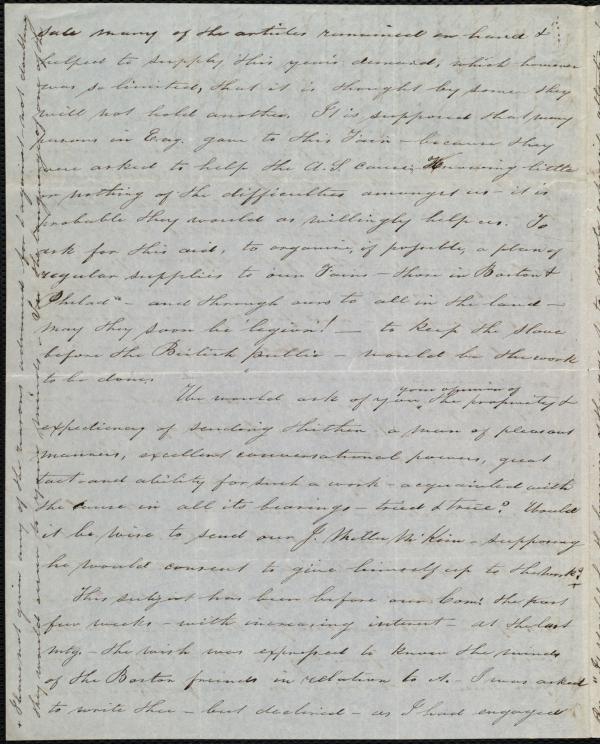 sale many of the articles remained on hand &
helped to supply this years demand, which however
was so limited, that it is thought by some they
will not hold another. It is supposed that many
persons in Eng. gave to this Fair - because they
were asked to help the A.S. cause; Knowing little
or nothing of the difficulties amongst us - it is
probable they would as willingly help us. To
ask for this aid, to organize, if possible, a plan of
regular supplies to our Fairs - those in Boston &
Philada - and through ours to all in the land -
may they soon be legion! - to keep the slave
before the British public - would be the work
to be done.
We would ask of you your opinion of the propriety &
expediency of sending thither a man of pleasant
manners, excellent conversational powers, great
tact and ability for such a work - acquainted with
the cause in all its bearings - tried & true? Would
it be wise to send our J. Miller McKim - supposing
he would consent to give himself up to the work?
This subject has been before our Com: the past
few weeks - with increasing interest - at the last
mtg. - the wish was expressed to know the minds
of the Boston friends in relation to it - I was asked
to write thee - but declined - as I had engaged